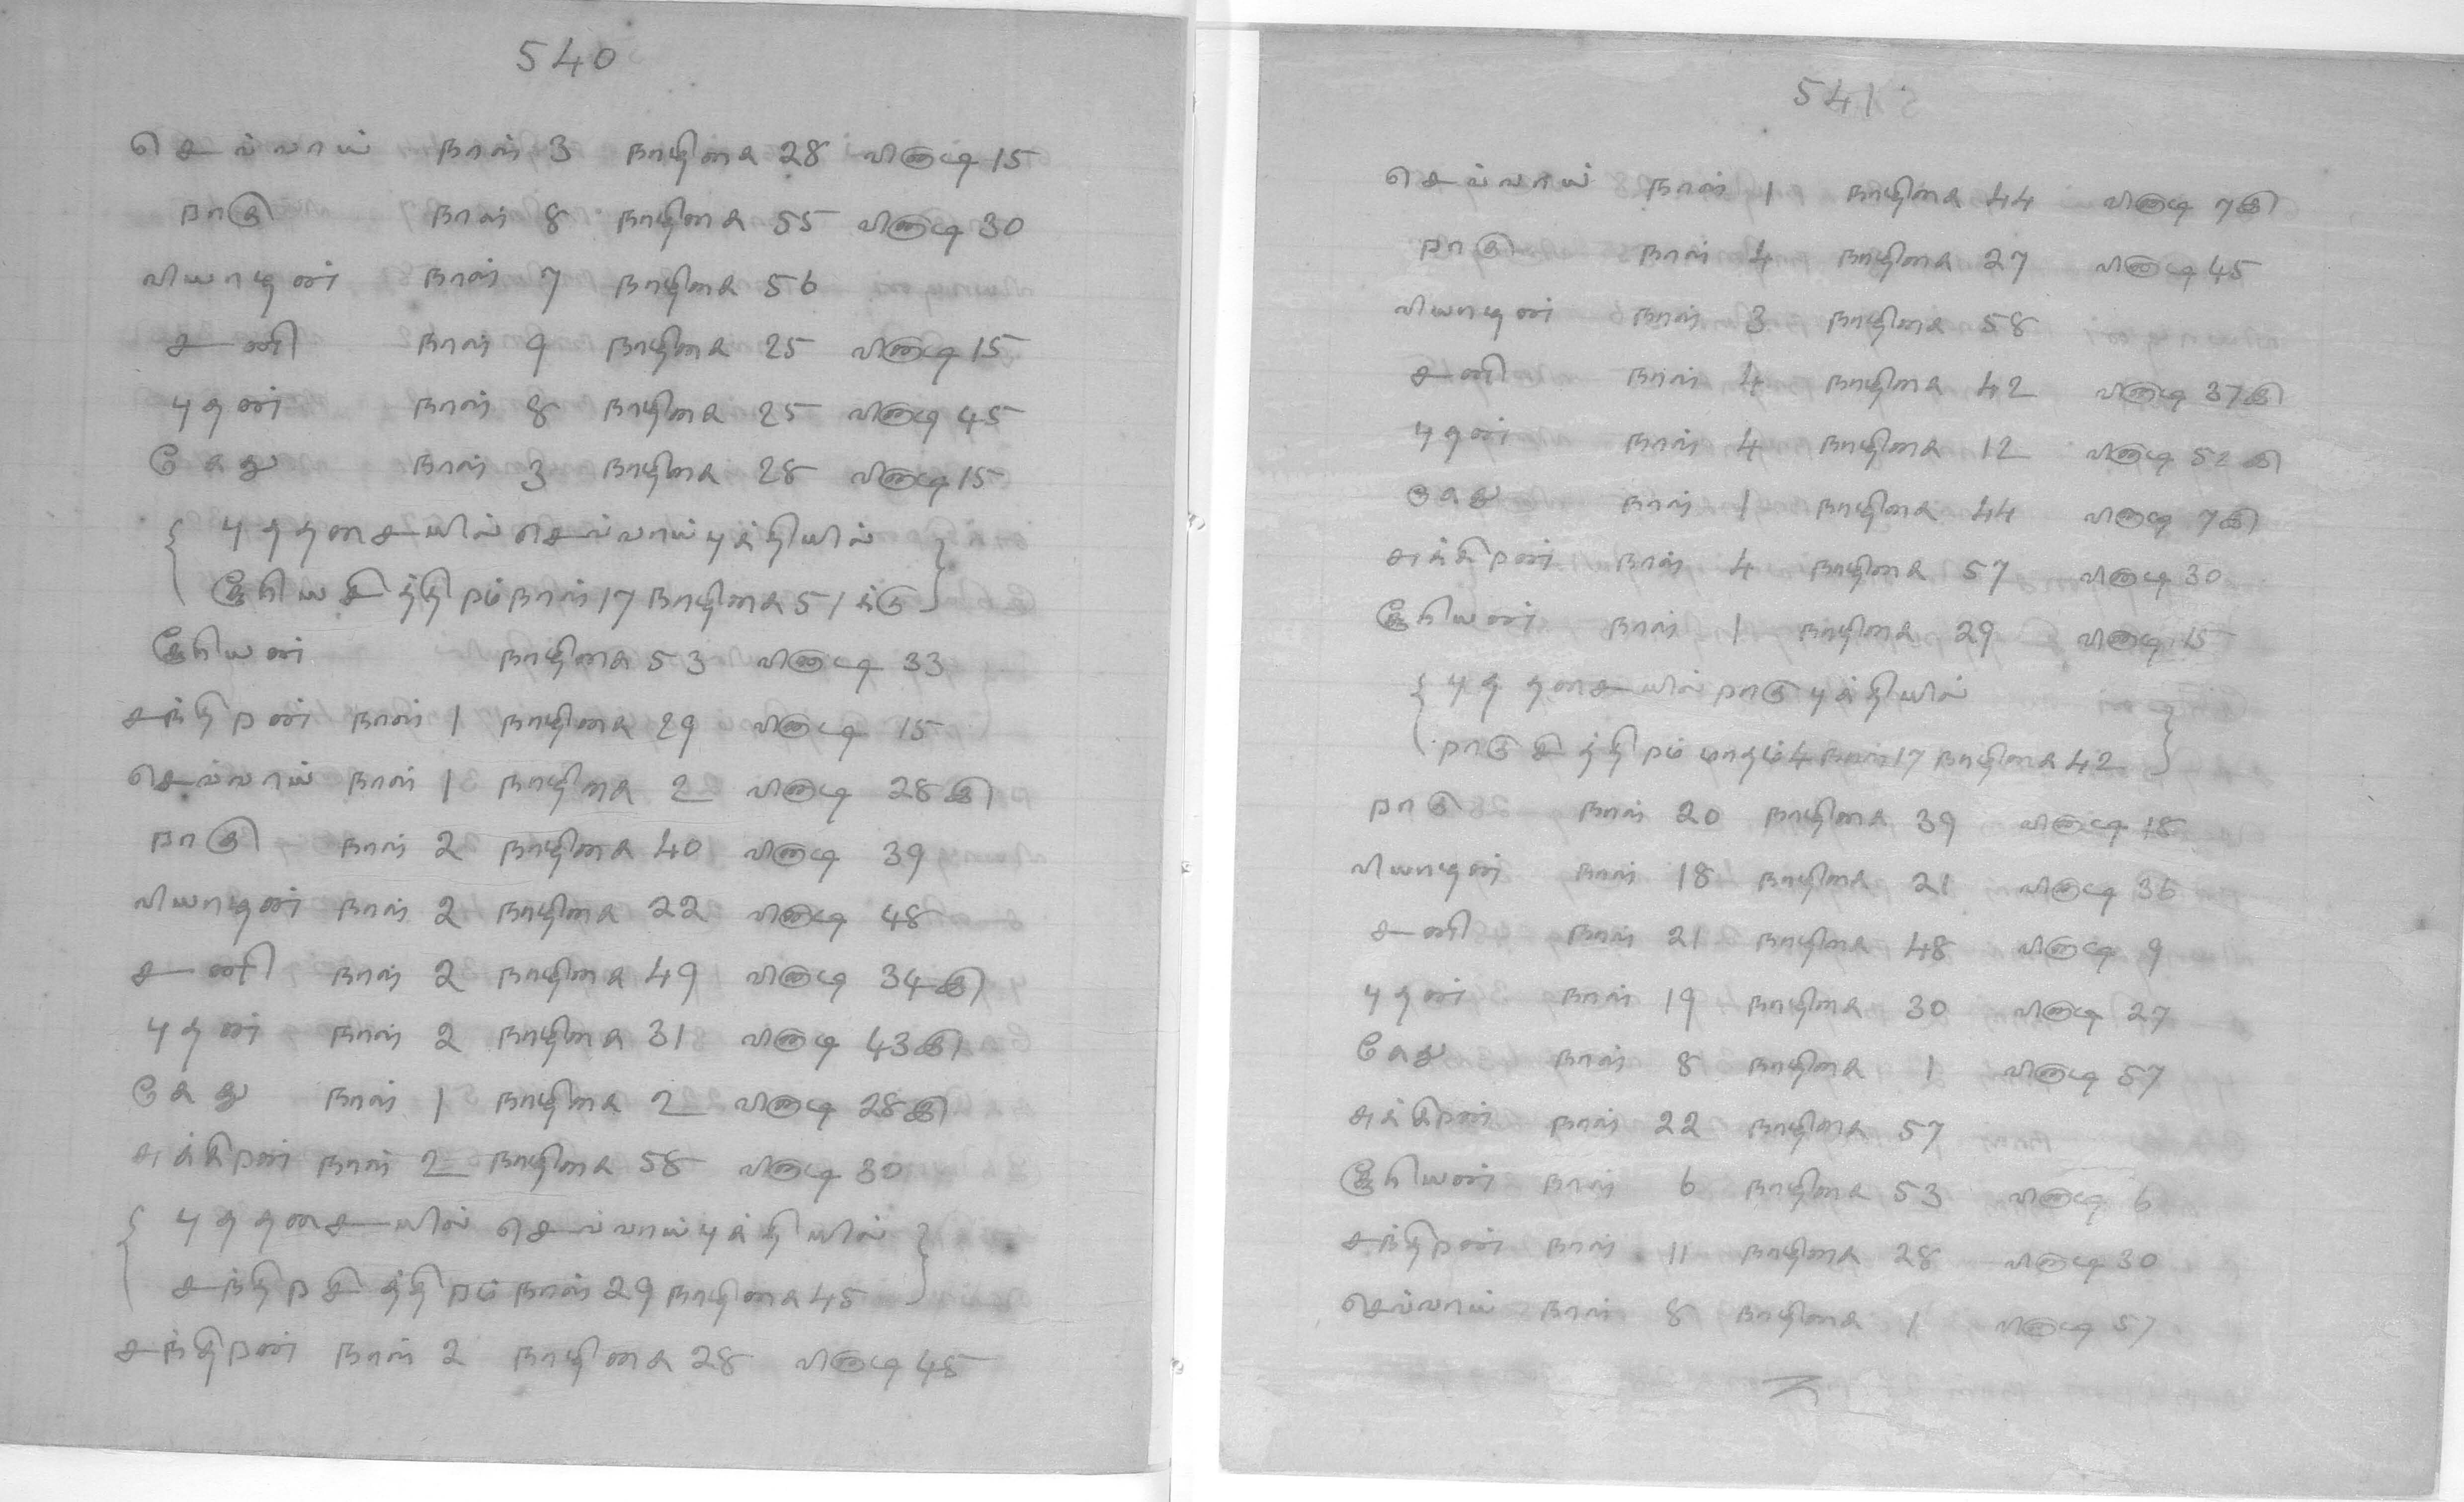 540
செவ்வாய் நாள் 3 நாழிகை 28 விநாடி 15
ராகு நாள் 8 நாழிகை 55 விநாடி 30
வியாழன் நாள் 7 நாழிகை 56
சனி நாள் 9 நாழிகை 25 விநாடி 15
புதன் நாள் 8 நாழிகை 25 விநாடி 45
கேது நாள் 3 நாழிகை 28 விநாடி 15
{ புத தசையில் செவ்வாய் புக்தியில் }
{ சூரிய சித்திரம் நாள் 17 நாழிகை 51க்கு }
சூரியன் நாழிகை 53 விநாடி 33
சந்திரன் நாள் 1 நாழிகை 29 விநாடி 15
செவ்வாய் நாள் 1 நாழிகை 2 விநாடி 28இ
ராகு நாள் 2 நாழிகை 40 விநாடி 39
வியாழன் நாள் 2 நாழிகை 22 விநாடி 48
சனி நாள் 2 நாழிகை 49 விநாடி 34இ
புதன் நாள் 2 நாழிகை 31 விநாடி 43இ
கேது நாள் 1 நாழிகை 2 விநாடி 28இ
சுக்கிரன் நாள் 2 நாழிகை 58 விநாடி 30
{ புத தசையில் செவ்வாய் புக்தியில் }
{ சந்திர சித்திரம் நாள் 29 நாழிகை 45 }
சந்திரன் நாள் 2 நாழிகை 28 விநாடி 45
541
செவ்வாய் நாள் 1 நாழிகை 44 விநாடி 7இ
ராகு நாள் 4 நாழிகை 27 விநாடி 45
வியாழன் நாள் 3 நாழிகை 58
சனி நாள் 4 நாழிகை 42 விநாடி 37இ
புதன் நாள் 4 நாழிகை 12 விநாடி 52இ
கேது நாள் 1 நாழிகை 44 விநாடி 7இ
சுக்கிரன் நாள் 4 நாழிகை 57 விநாடி 30
சூரியன் நாள் 1 நாழிகை 29 விநாடி 15
{ புத தசையில் ராகு புக்தியில் }
{ ராகு சித்திரம் மாதம் 4 நாள் 17 நாழிகை 42 }
ராகு நாள் 20 நாழிகை 39 விநாடி 18
வியாழன் நாள் 18 நாழிகை 21 விநாடி 36
சனி நாள் 21 நாழிகை 48 விநாடி 9
புதன் நாள் 19 நாழிகை 30 விநாடி 27
கேது நாள் 8 நாழிகை 1 விநாடி 57
சுக்கிரன் நாள் 22 நாழிகை 57
சூரியன் நாள் 6 நாழிகை 53 விநாடி 6
சந்திரன் நாள் 11 நாழிகை 28 விநாடி 30
செவ்வாய் நாள் 8 நாழிகை 1 விநாடி 57